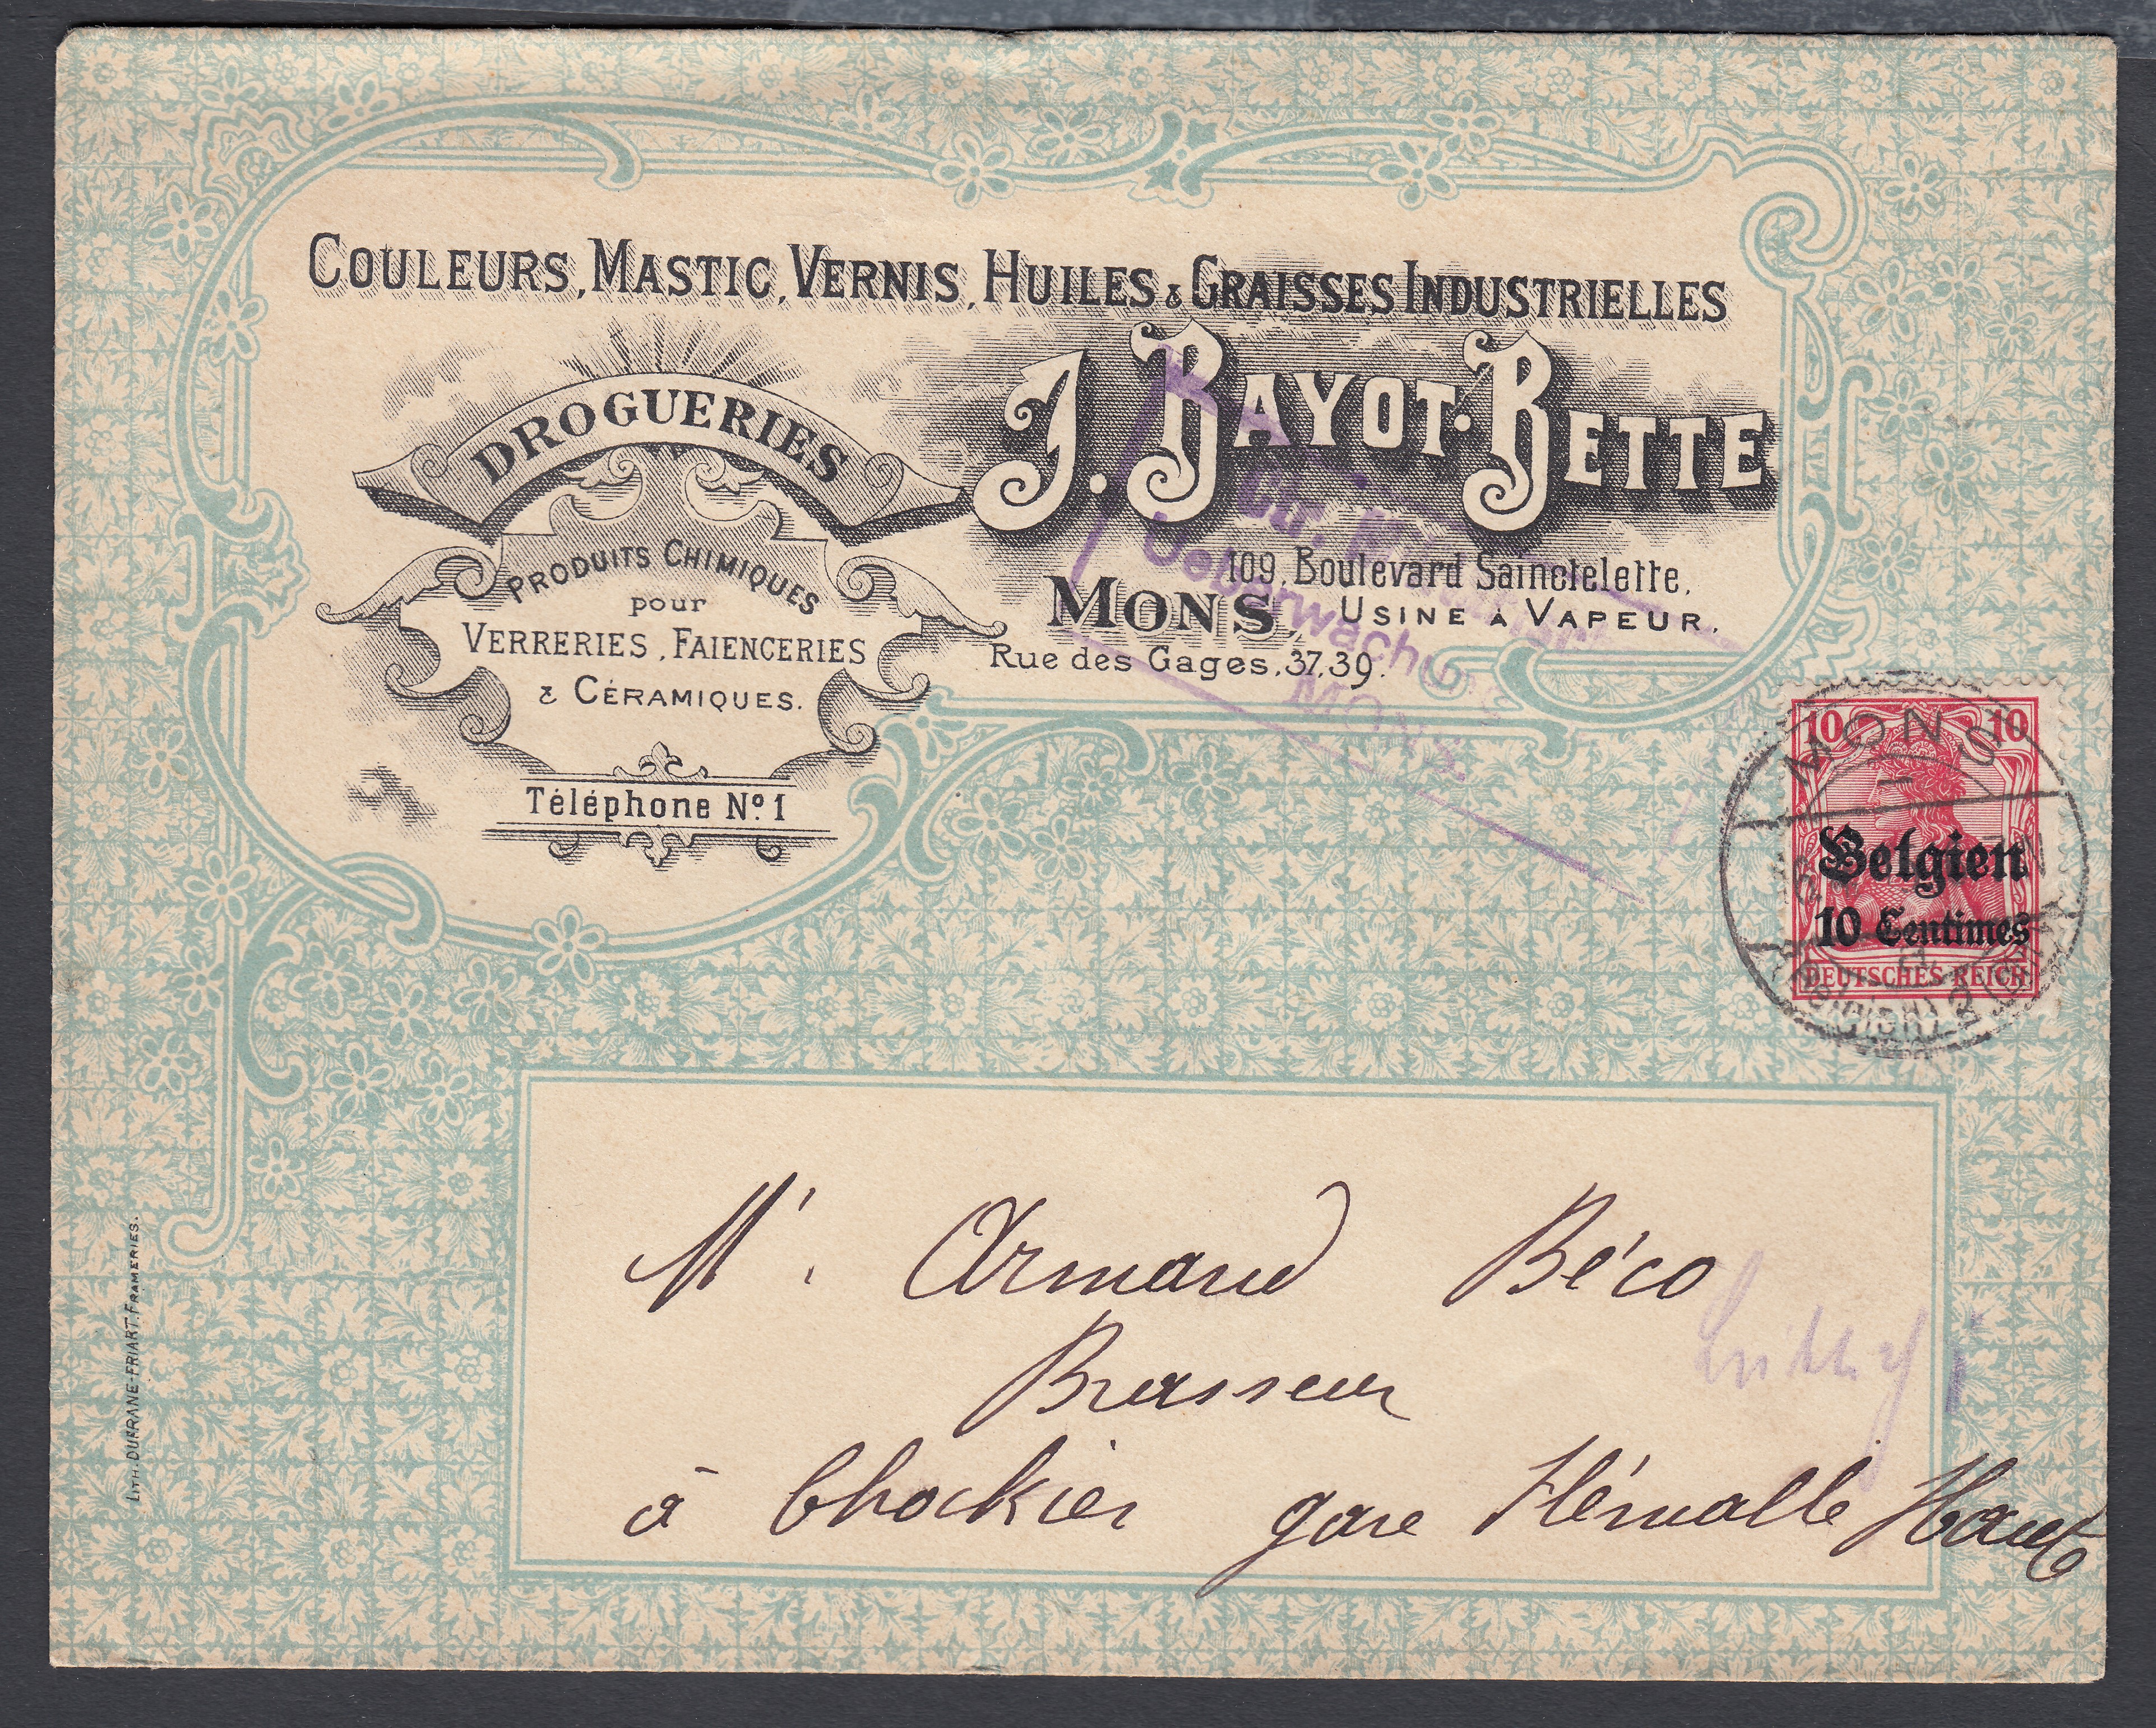 COULEURS, MASTIC, VERNIS, HUILES & GRAISSES INDUSTRIELLES
DROGUERIES
PRODUITS CHIMIQUES
pour
VERRERIES, FAIENCERIES
& CÉRAMIQUES.
Téléphone Nº 1
J. BAYOT-BETTE
109, Boulevard Sainctelette,
MONS, USINE A VAPEUR.
Rue des Gages, 37, 39.
Ctr.
Ueberwachung
MONS.
10 10
Belgien
10 Centimes
DEUTSCHES REICH
MONS
(Belgien)
Mr. Armand Béco
Brasseur
à Chockier gare Flémalle Haute
LITH. DUFRANE-FRIART, FRAMERIES.